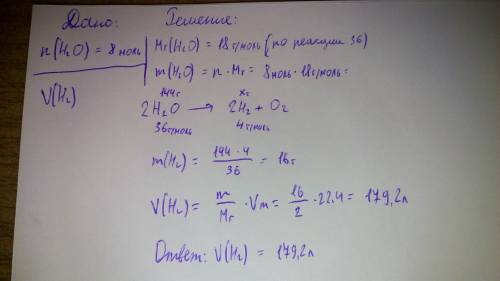 Дано: Решение:
n(H₂O) = 8 моль Mr(H₂O) = 18 г/моль (по реакции 36)
m(H₂O) = n · Mr = 8 моль · 18 г/моль =
V(H₂) 144г xг
2H₂O → 2H₂ + O₂
36г/моль 4г/моль
m(H₂) = 144 · 4 / 36 = 16г
V(H₂) = m / Mr · Vm = 16 / 2 · 22.4 = 179,2л
Ответ: V(H₂) = 179,2л